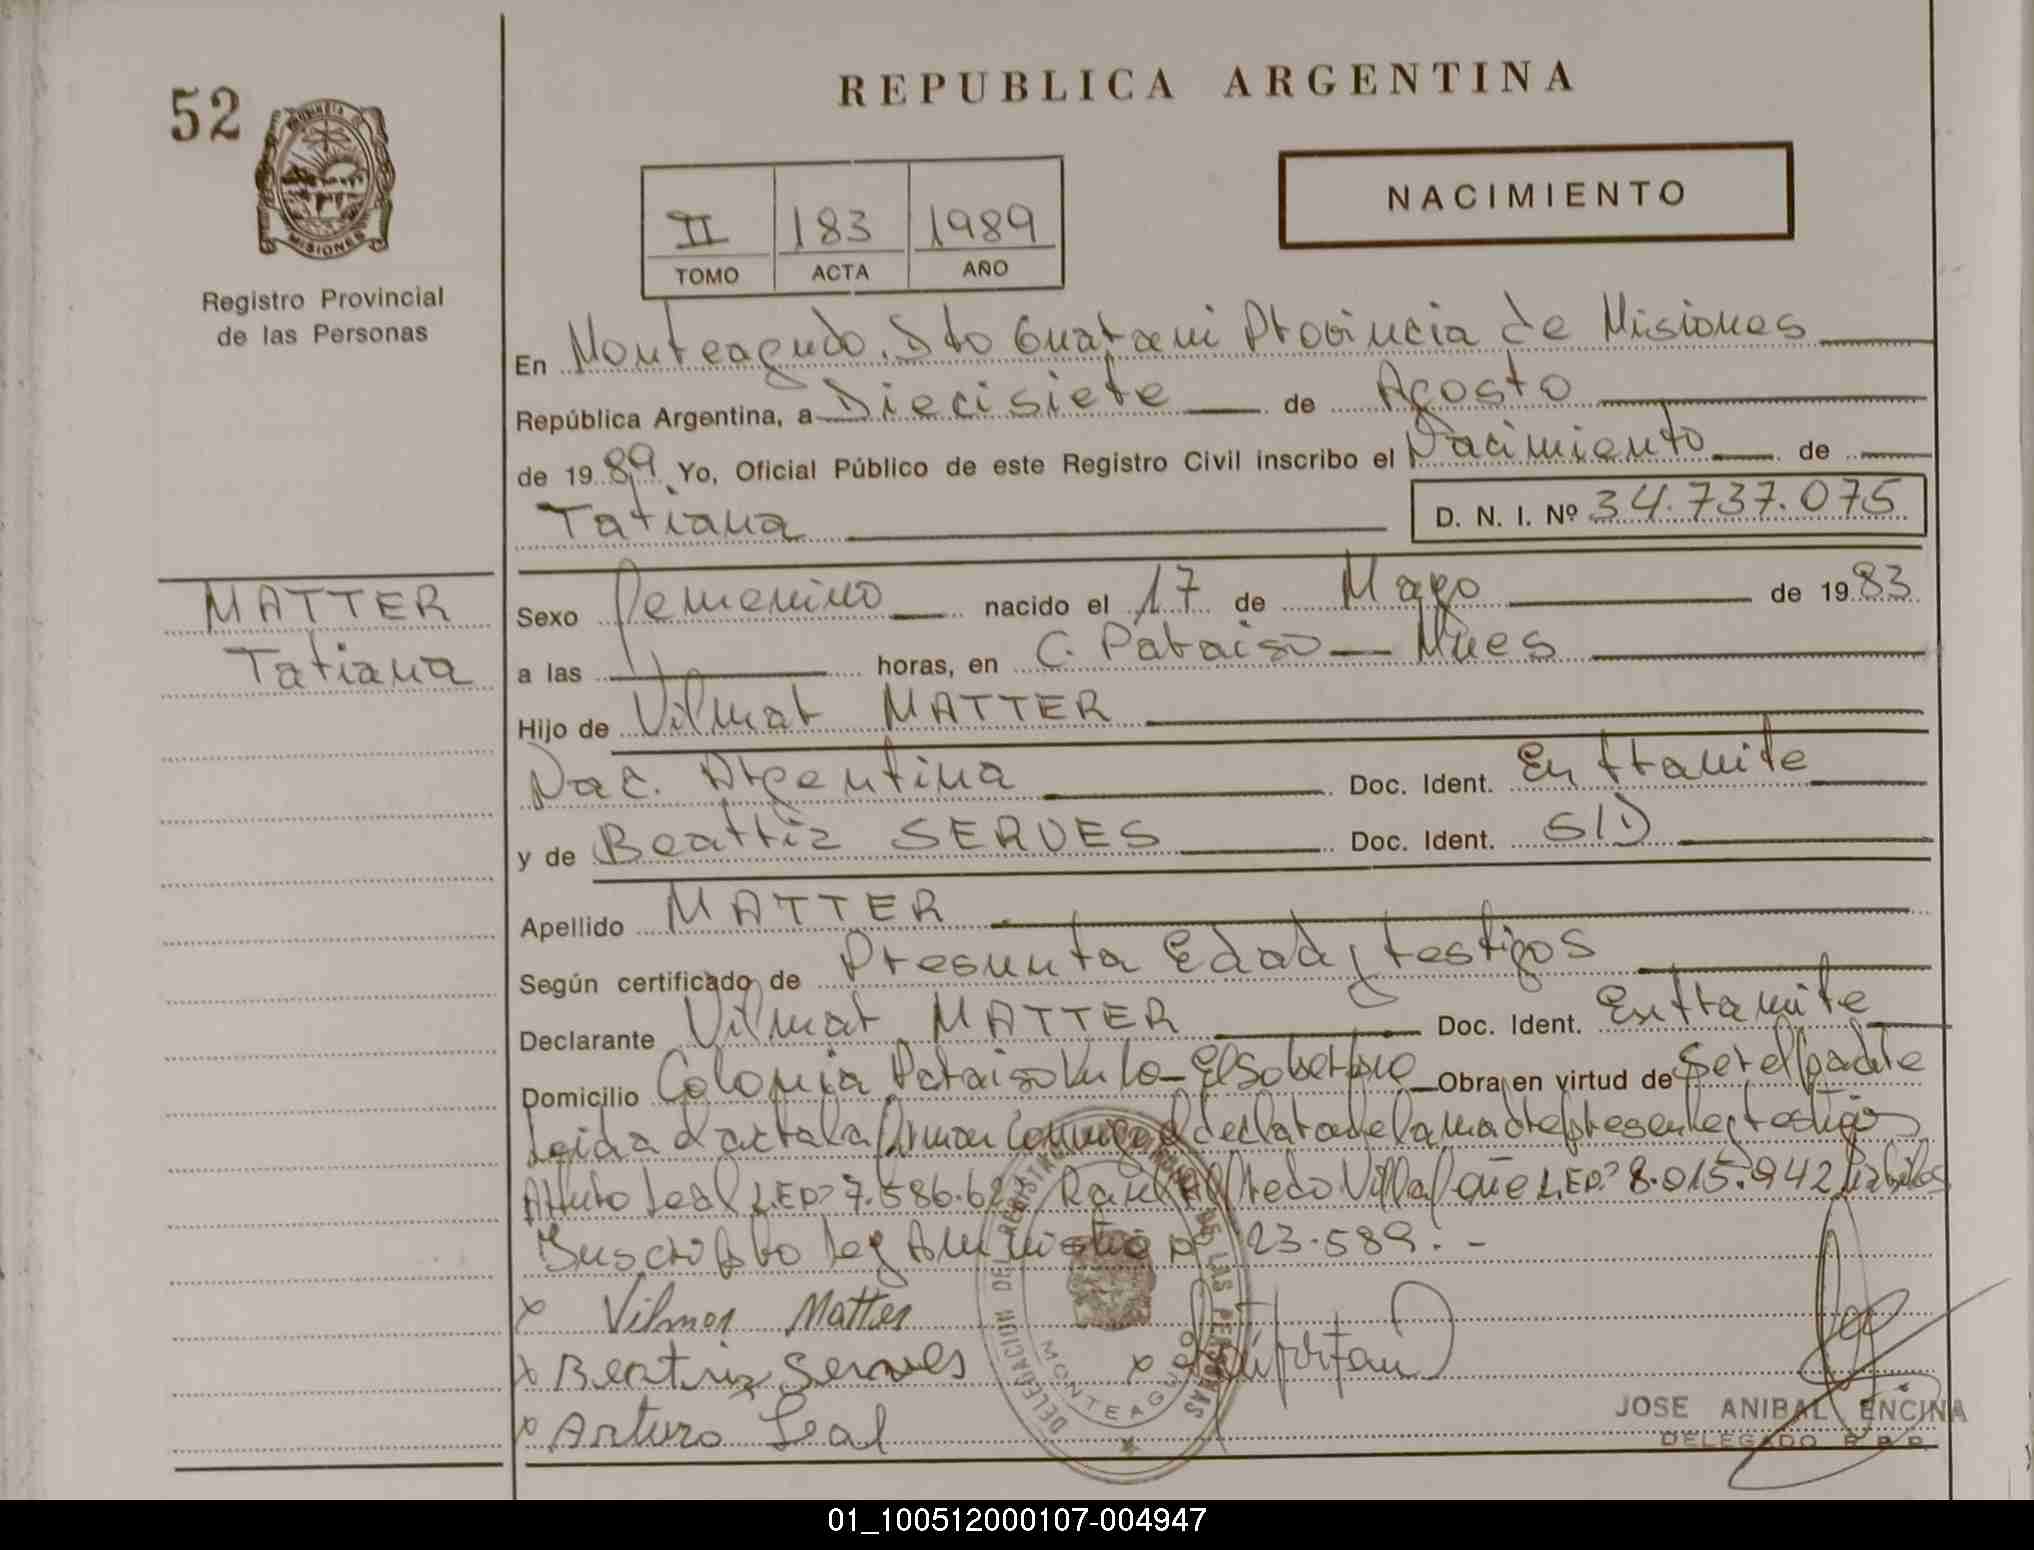 52
REPUBLICA ARGENTINA
PROVINCIA DE MISIONES
Registro Provincial
de las Personas
II 183 1989
TOMO ACTA AÑO
NACIMIENTO
En Monteagudo, Dto Guarani Provincia de Misiones
República Argentina, a Diecisiete de Agosto
de 1989. Yo, Oficial Público de este Registro Civil inscribo el Nacimiento de
Tatiana D. N. I. Nº 34.737.075
MATTER
Tatiana
Sexo Femenino nacido el 17 de Mayo de 1983
a las horas, en C. Paraiso - Mnes
Hijo de Vilmar MATTER
Nac. Argentina Doc. Ident. En tramite
y de Beatriz SERVES Doc. Ident. S/D
Apellido MATTER
Según certificado de Presunta Edad y testigos
Declarante Vilmar MATTER Doc. Ident. En tramite
Domicilio Colonia Paraiso - El Soberbio Obra en virtud de Ser el padre
Leida el acta la firman conmigo el declarante la madre presente testigos
Arturo Leal L.E.Nº 7.586.62 Alfredo Villalque L.E.Nº 8.015.942
Suscribo Leg Administ 23.589.-
x Vilmar Matter
x Beatriz Serves x
x Arturo Leal
DELEGACION DEL REGISTRO DE LAS PERSONAS
MONTEAGUDO
JOSE ANIBAL ENCINA
DELEGADO R.P.P.
01_100512000107-004947